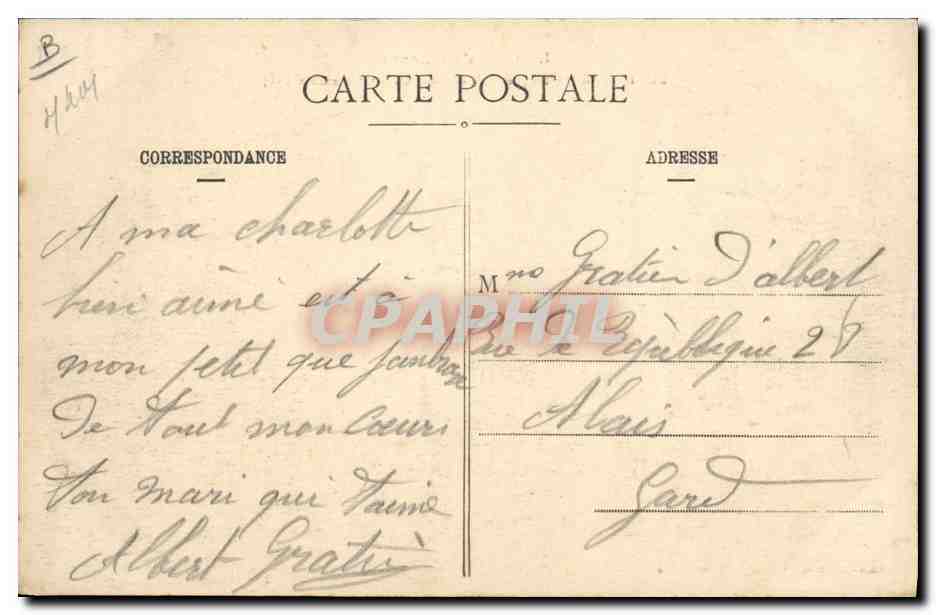 B
CARTE POSTALE
CORRESPONDANCE
A ma charlotte
bien aimé et à
mon petit que j'anbrase
De tout mon Cœur
ton mari qui t'aime
Albert Gratien
ADRESSE
Mme Gratien d'albert
Rue de République 28
Alais
Gard
CPAPHIL